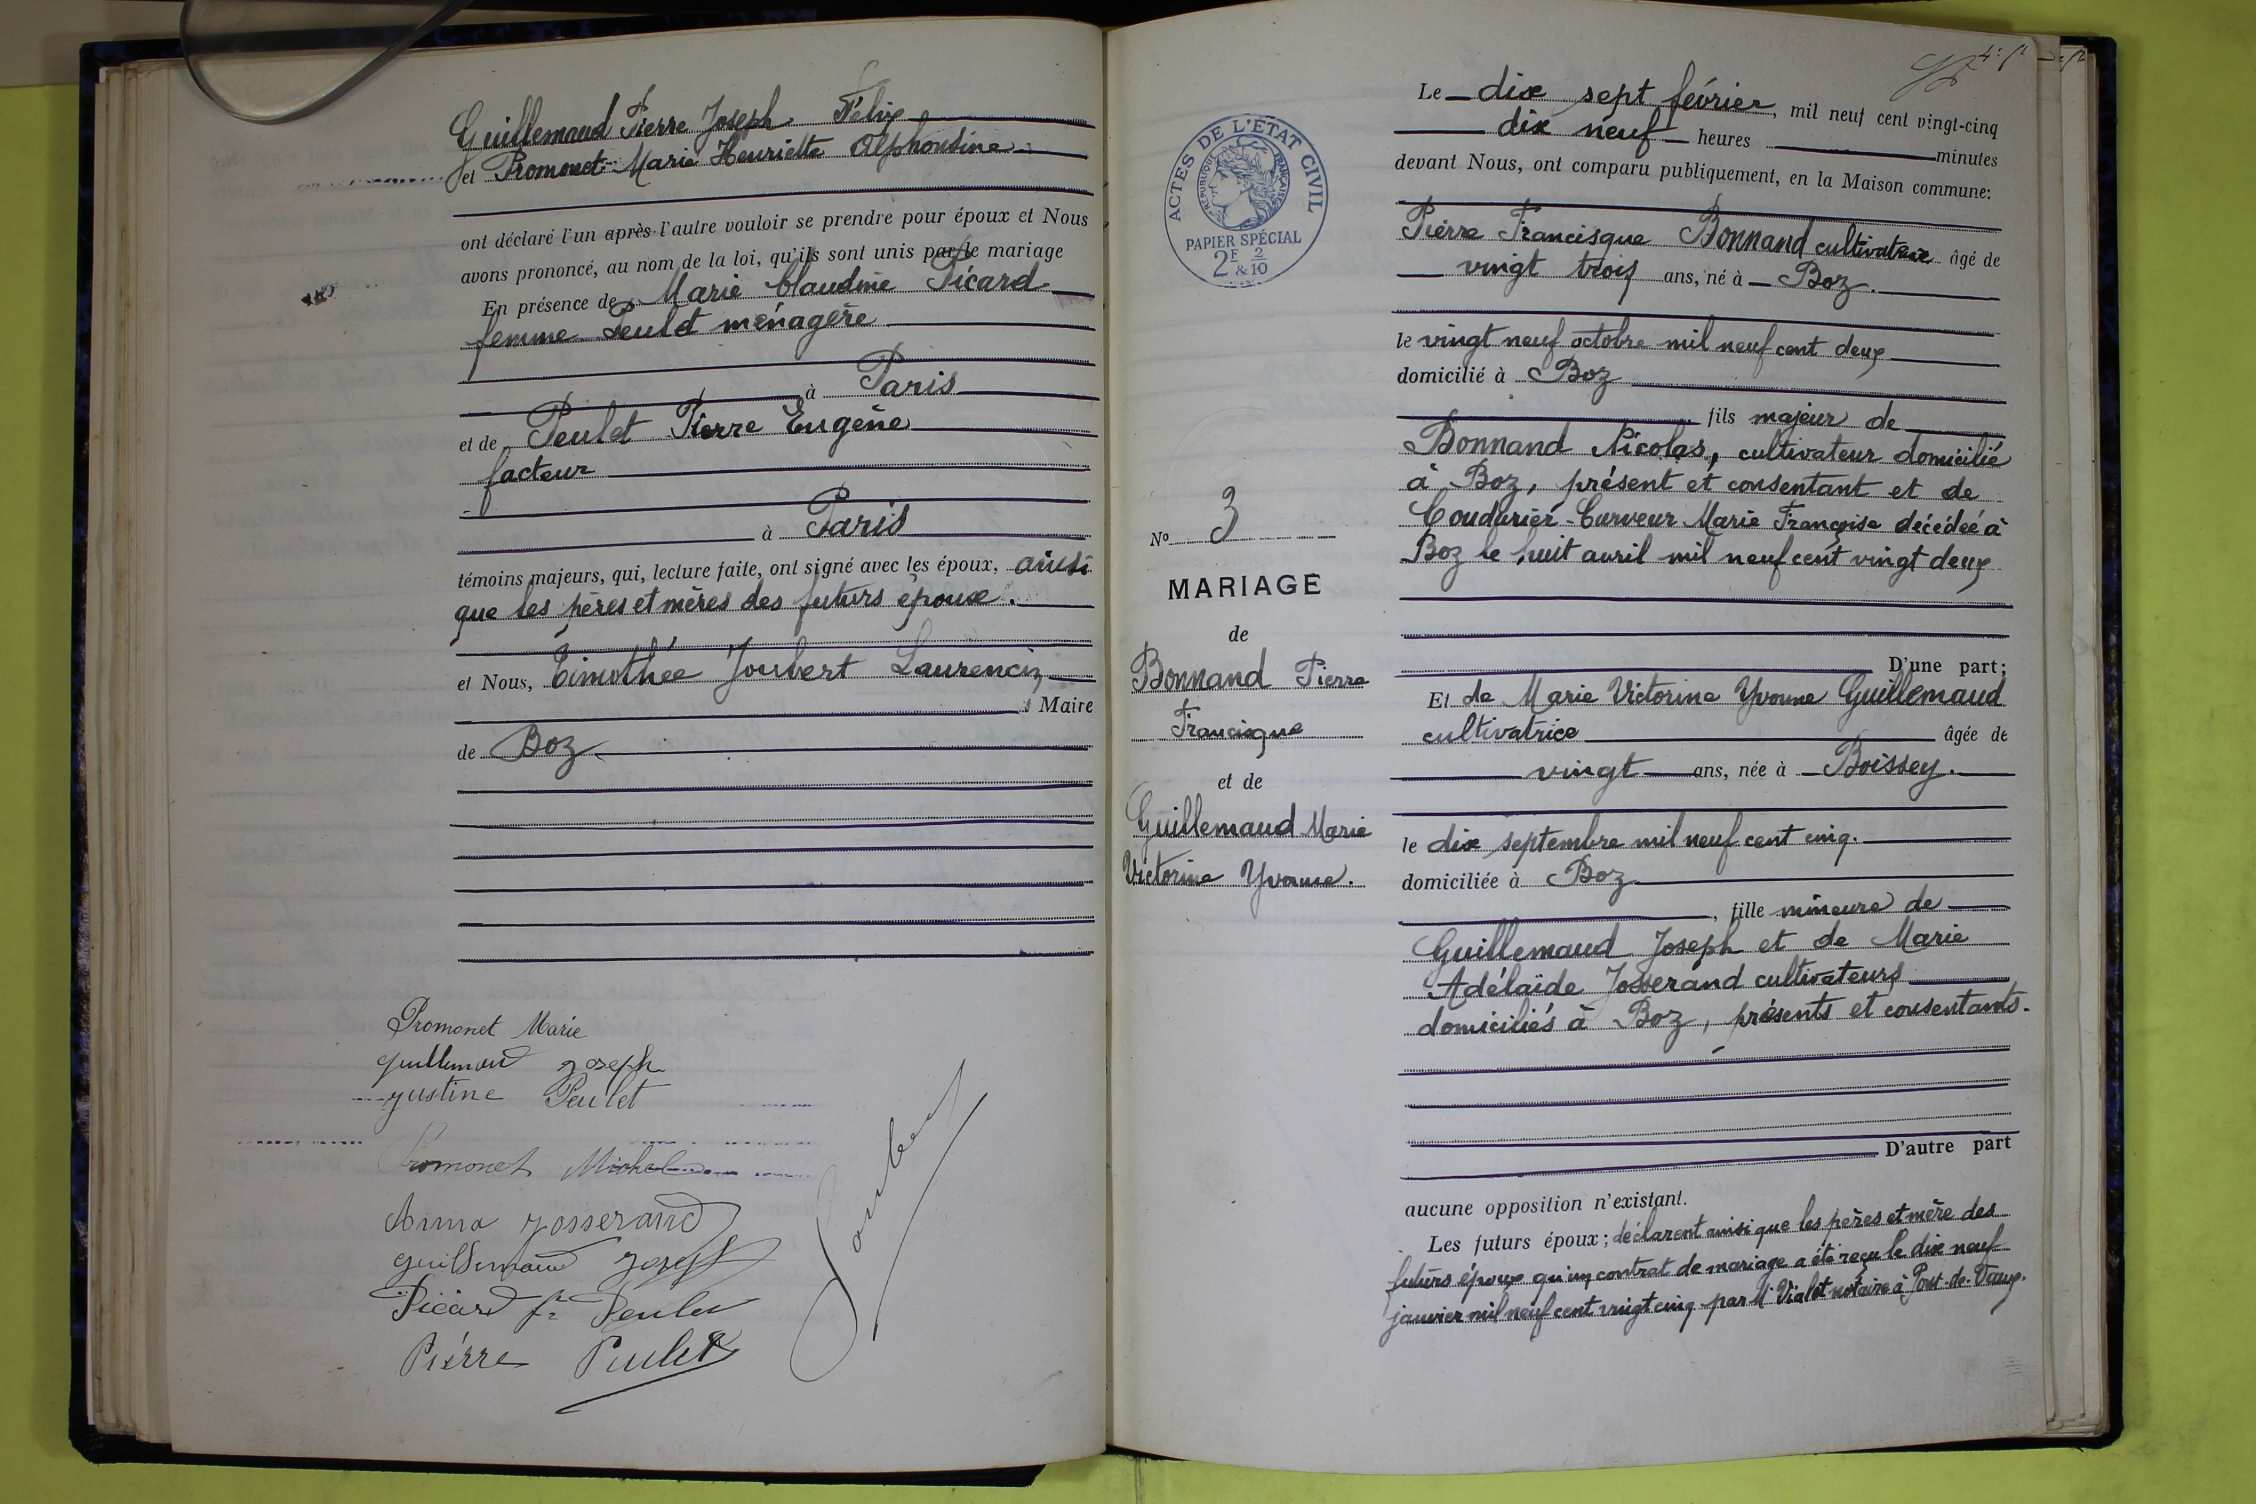 Guillemaud Pierre Joseph Félix
et Promonet Marie Henriette Alphonsine
ont déclaré l'un après l'autre vouloir se prendre pour époux et Nous
avons prononcé, au nom de la loi, qu'ils sont unis par le mariage
En présence de Marie Claudine Picard
femme Peulet ménagère
à Paris
et de Peulet Pierre Eugène
facteur
à Paris
témoins majeurs, qui, lecture faite, ont signé avec les époux, ainsi
que les pères et mères des futurs époux.
et Nous, Timothée Joubert Laurencin
Maire
de Boz
Promonet Marie
Guillemaud Joseph
Justine Peulet
Promonet Michel
Anna Josserand
Guillemaud Joseph
Picard fe Peulet
Pierre Peulet
Joubert
ACTES DE L'ETAT CIVIL
REPUBLIQUE FRANÇAISE
PAPIER SPÉCIAL
2F & 2/10
No 3
MARIAGE
de
Bonnand Pierre
Francisque
et de
Guillemaud Marie
Victorine Yvonne.
Le dix sept février, mil neuf cent vingt-cinq
dix neuf heures minutes
devant Nous, ont comparu publiquement, en la Maison commune:
Pierre Francisque Bonnand cultivateur âgé de
vingt trois ans, né à Boz.
le vingt neuf octobre mil neuf cent deux
domicilié à Boz
fils majeur de
Bonnand Nicolas, cultivateur domicilié
à Boz, présent et consentant et de
Coudurier-Curveur Marie Françoise décédée à
Boz le huit avril mil neuf cent vingt deux
D'une part;
Et de Marie Victorine Yvonne Guillemaud
cultivatrice âgée de
vingt ans, née à Boissey.
le dix septembre mil neuf cent cinq.
domiciliée à Boz
, fille mineure de
Guillemaud Joseph et de Marie
Adélaïde Josserand cultivateurs
domiciliés à Boz, présents et consentants.
D'autre part
aucune opposition n'existant.
Les futurs époux; déclarent ainsi que les pères et mère des
futurs époux qu'un contrat de mariage a été reçu le dix neuf
janvier mil neuf cent vingt cinq par Me Vialet notaire à Pont-de-Vaux.